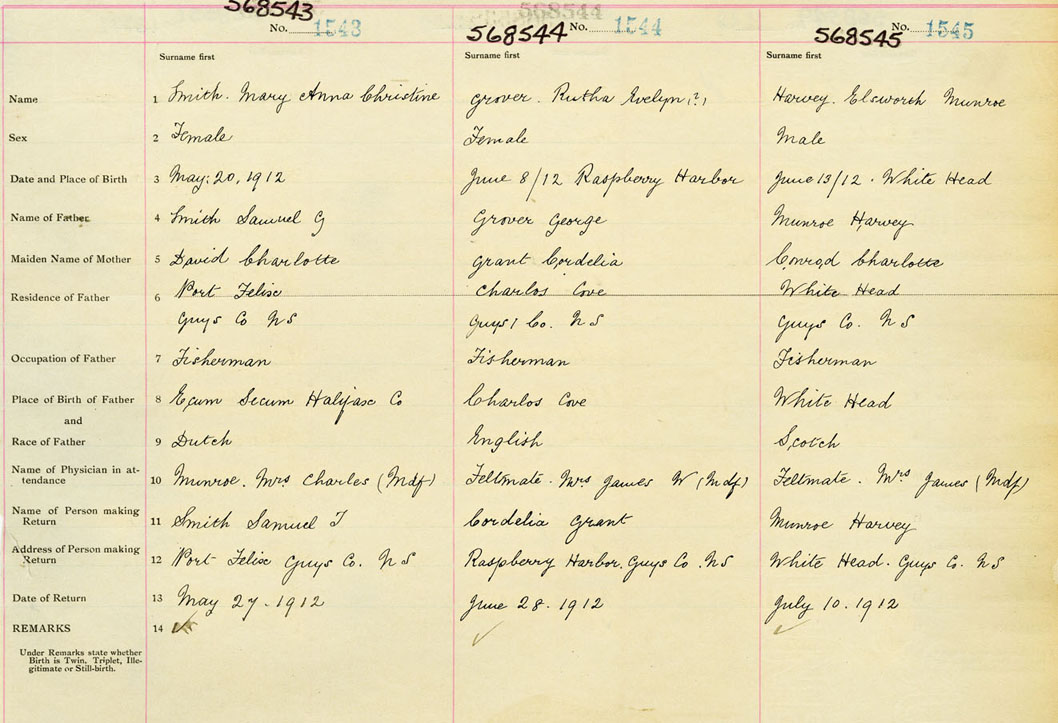 568543 568544
No. 1543 568544 No. 1544 568545 No. 1545
Surname first Surname first Surname first
Name 1 Smith. Mary Anna Christine Grover. Rutha Evelyn (?) Harvey. Elsworth Munroe
Sex 2 Female Female Male
Date and Place of Birth 3 May: 20, 1912 June 8/12 Raspberry Harbor June 13/12. White Head
Name of Father 4 Smith Samuel G Grover George Munroe Harvey
Maiden Name of Mother 5 David Charlotte Grant Cordelia Conrod Charlotte
Residence of Father 6 Port Felix Charlos Cove White Head
Guys Co NS Guys' Co. NS Guys Co. NS
Occupation of Father 7 Fisherman Fisherman Fisherman
Place of Birth of Father 8 Ecum Secum Halifax Co Charlos Cove White Head
and
Race of Father 9 Dutch English Scotch
Name of Physician in at-
tendance 10 Munroe. Mrs Charles (Mdf) Feltmate. Mrs James W (Mdf) Feltmate. Mrs James (Mdf)
Name of Person making
Return 11 Smith Samuel J Cordelia Grant Munroe Harvey
Address of Person making
Return 12 Port Felix Guys Co. NS Raspberry Harbor. Guys Co. NS White Head. Guys Co. NS
Date of Return 13 May 27. 1912 June 28. 1912 July 10. 1912
REMARKS 14
Under Remarks state whether
Birth is Twin, Triplet, Ille-
gitimate or Still-birth.